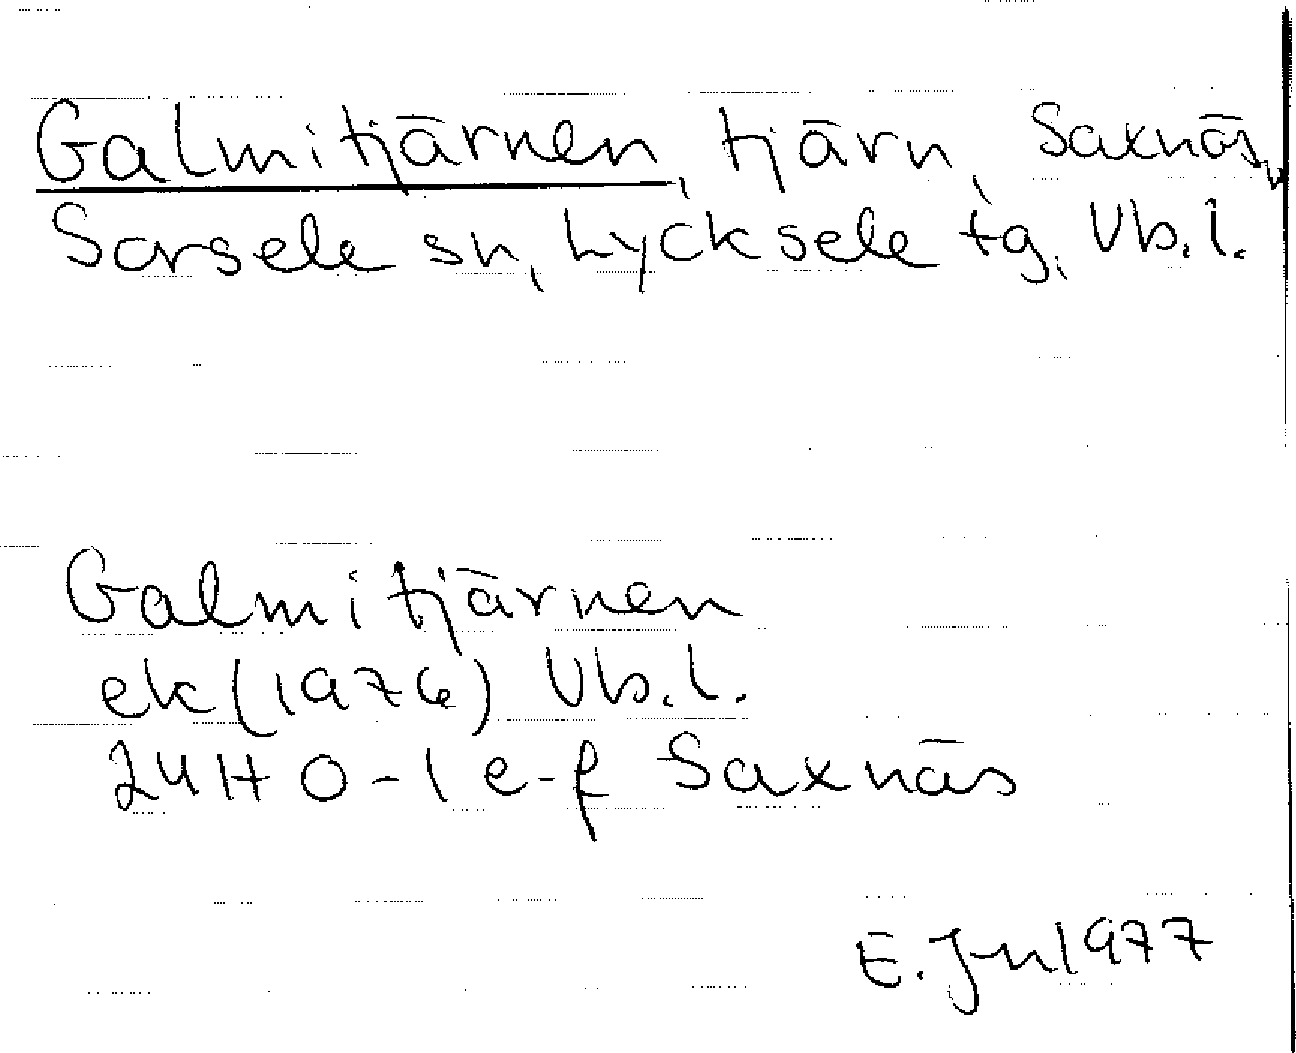 Galmitjärnen, tjärn, Saxnäs,
Sorsele sn, Lycksele tg, Vb.l.
Galmitjärnen
ek (1976) Vb.l.
24H 0-1 e-f Saxnäs
E. Jn 1977